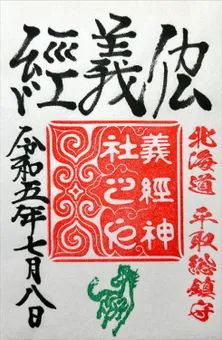 義經
北海道 平取総鎮守
義經神
社之印
令和五年七月八日